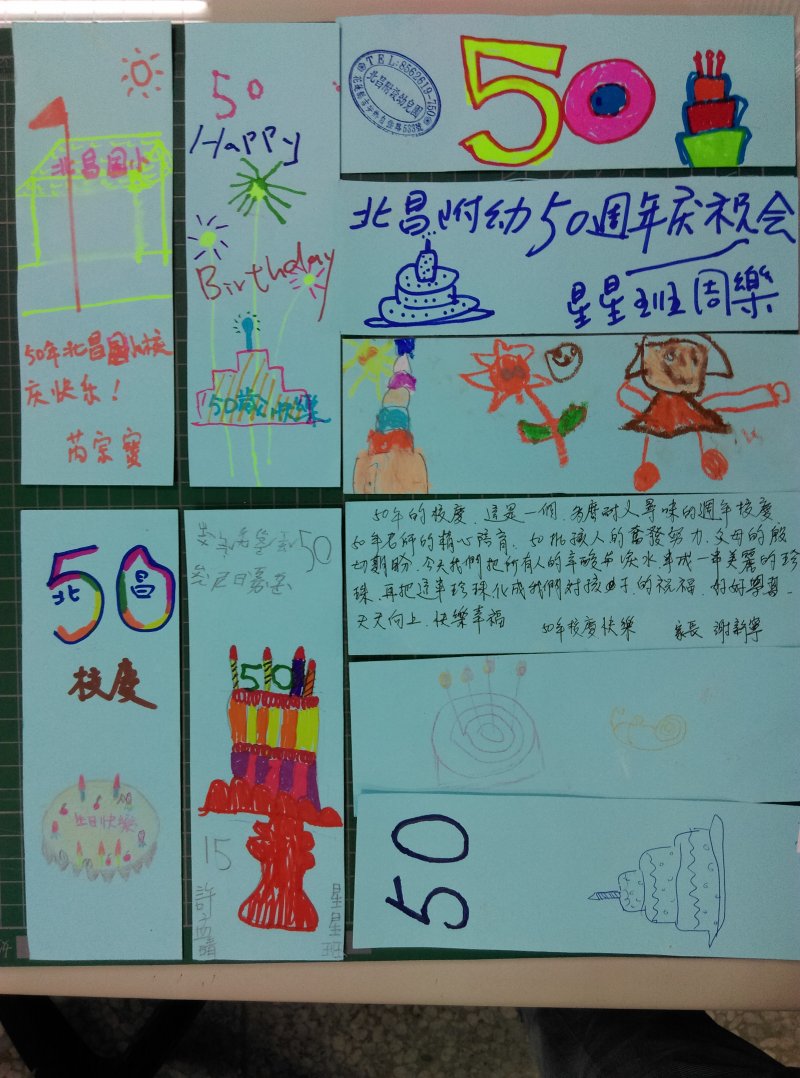 北昌國小
50年北昌國小校
慶快乐!
芮宗寶
50
Happy
Birthday
50歲公快樂
TEL:8562619-750
北昌附設幼兒園
50
北昌附幼50週年庆祝会
星星班同樂
50年的校慶,這是一個多麼耐人尋味的週年校慶
50年老師的精心培育,50批職人的奮發努力,父母的殷
切期盼,今天我們把所有人的辛酸和淚水串成一串美麗的珍
珠,再把這串珍珠化成我們對孩子的祝福,好好學習,
天天向上,快樂幸福
50年校慶快樂 家長 謝新寧
50
北 昌
校慶
生日快樂
50
50
15
許孟晴
星星班
50